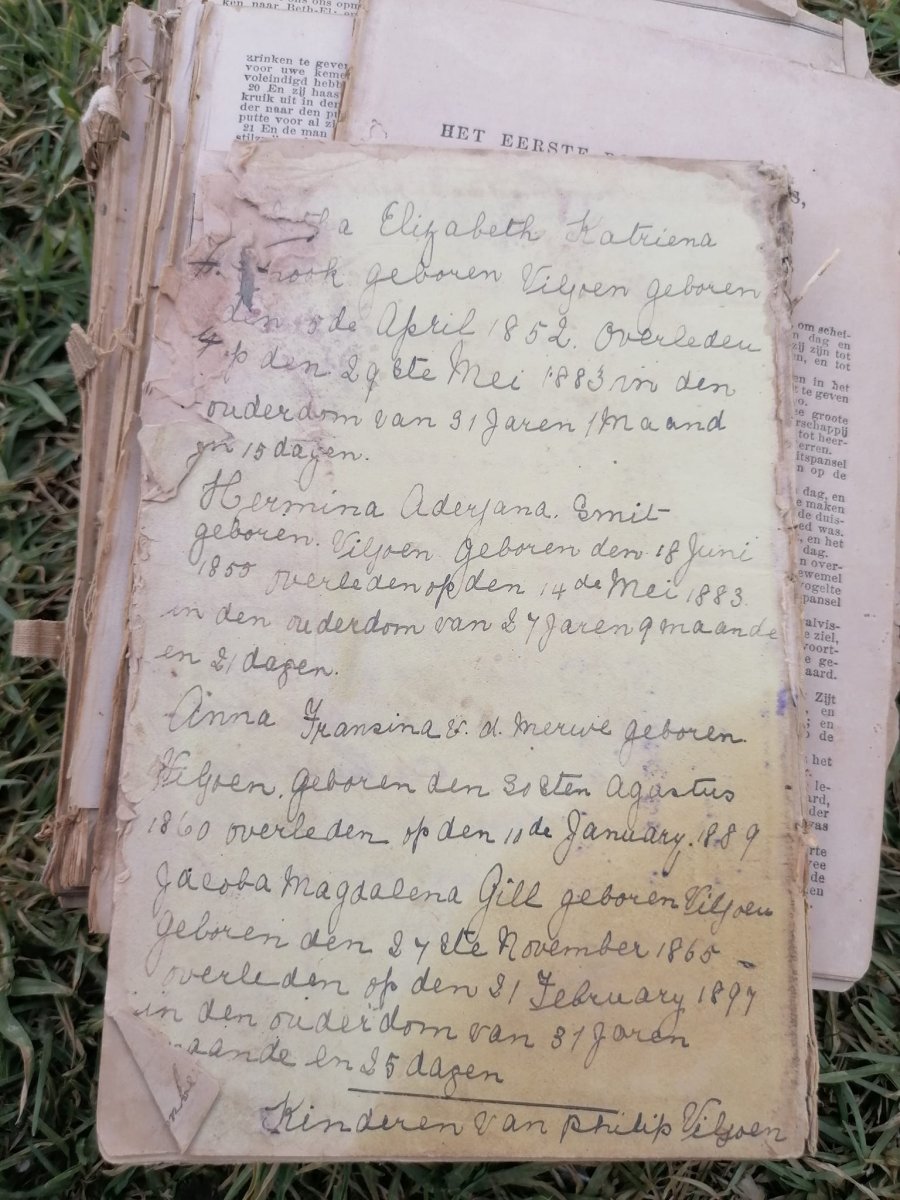 ken naar Beth-El
arinken te geven
voor uwe keme
voleindigd hebb
20 En zij haas
kruik uit in den
der naar den pu
putte voor al zi
21 En de man
HET EERSTE
s,
a Elizabeth Katriena
nook geboren Viljoen geboren
den 5de April 1852. Overleden
op den 29ste Mei 1883 in den
ouderdom van 31 Jaren 1 Maand
en 15 dagen.
Hermina Aderjana. Smit
geboren. Viljoen. Geboren den 18 Juni
1855 overleden op den 14de Mei 1883.
in den ouderdom van 27 Jaren 9 maande
en 21 dagen.
Anna Fransina v. d. Merwe geboren
Viljoen. geboren den 30sten Agustus
1860 overleden op den 11de January. 1889
Jacoba Magdalena Gill geboren Viljoen
geboren den 27ste November 1865
overleden op den 21 February 1897
in den ouderdom van 31 Jaren
maande en 25 dagen
Kinderen van Philip Viljoen
om schei-
n dag en
zij zijn tot
en, en tot
en in het
te geven
o.
e groote
rschappij
tot heer-
erren.
itspansel
n op de
dag, en
e maken
de duis-
ed was.
, en het
dag.
n over-
ewemel
vogelte
pansel
alvis-
e ziel,
voort-
e ge-
aard.
Zijt
en
; en
de
het
le-
ard,
der
was
rte
vee
de
en